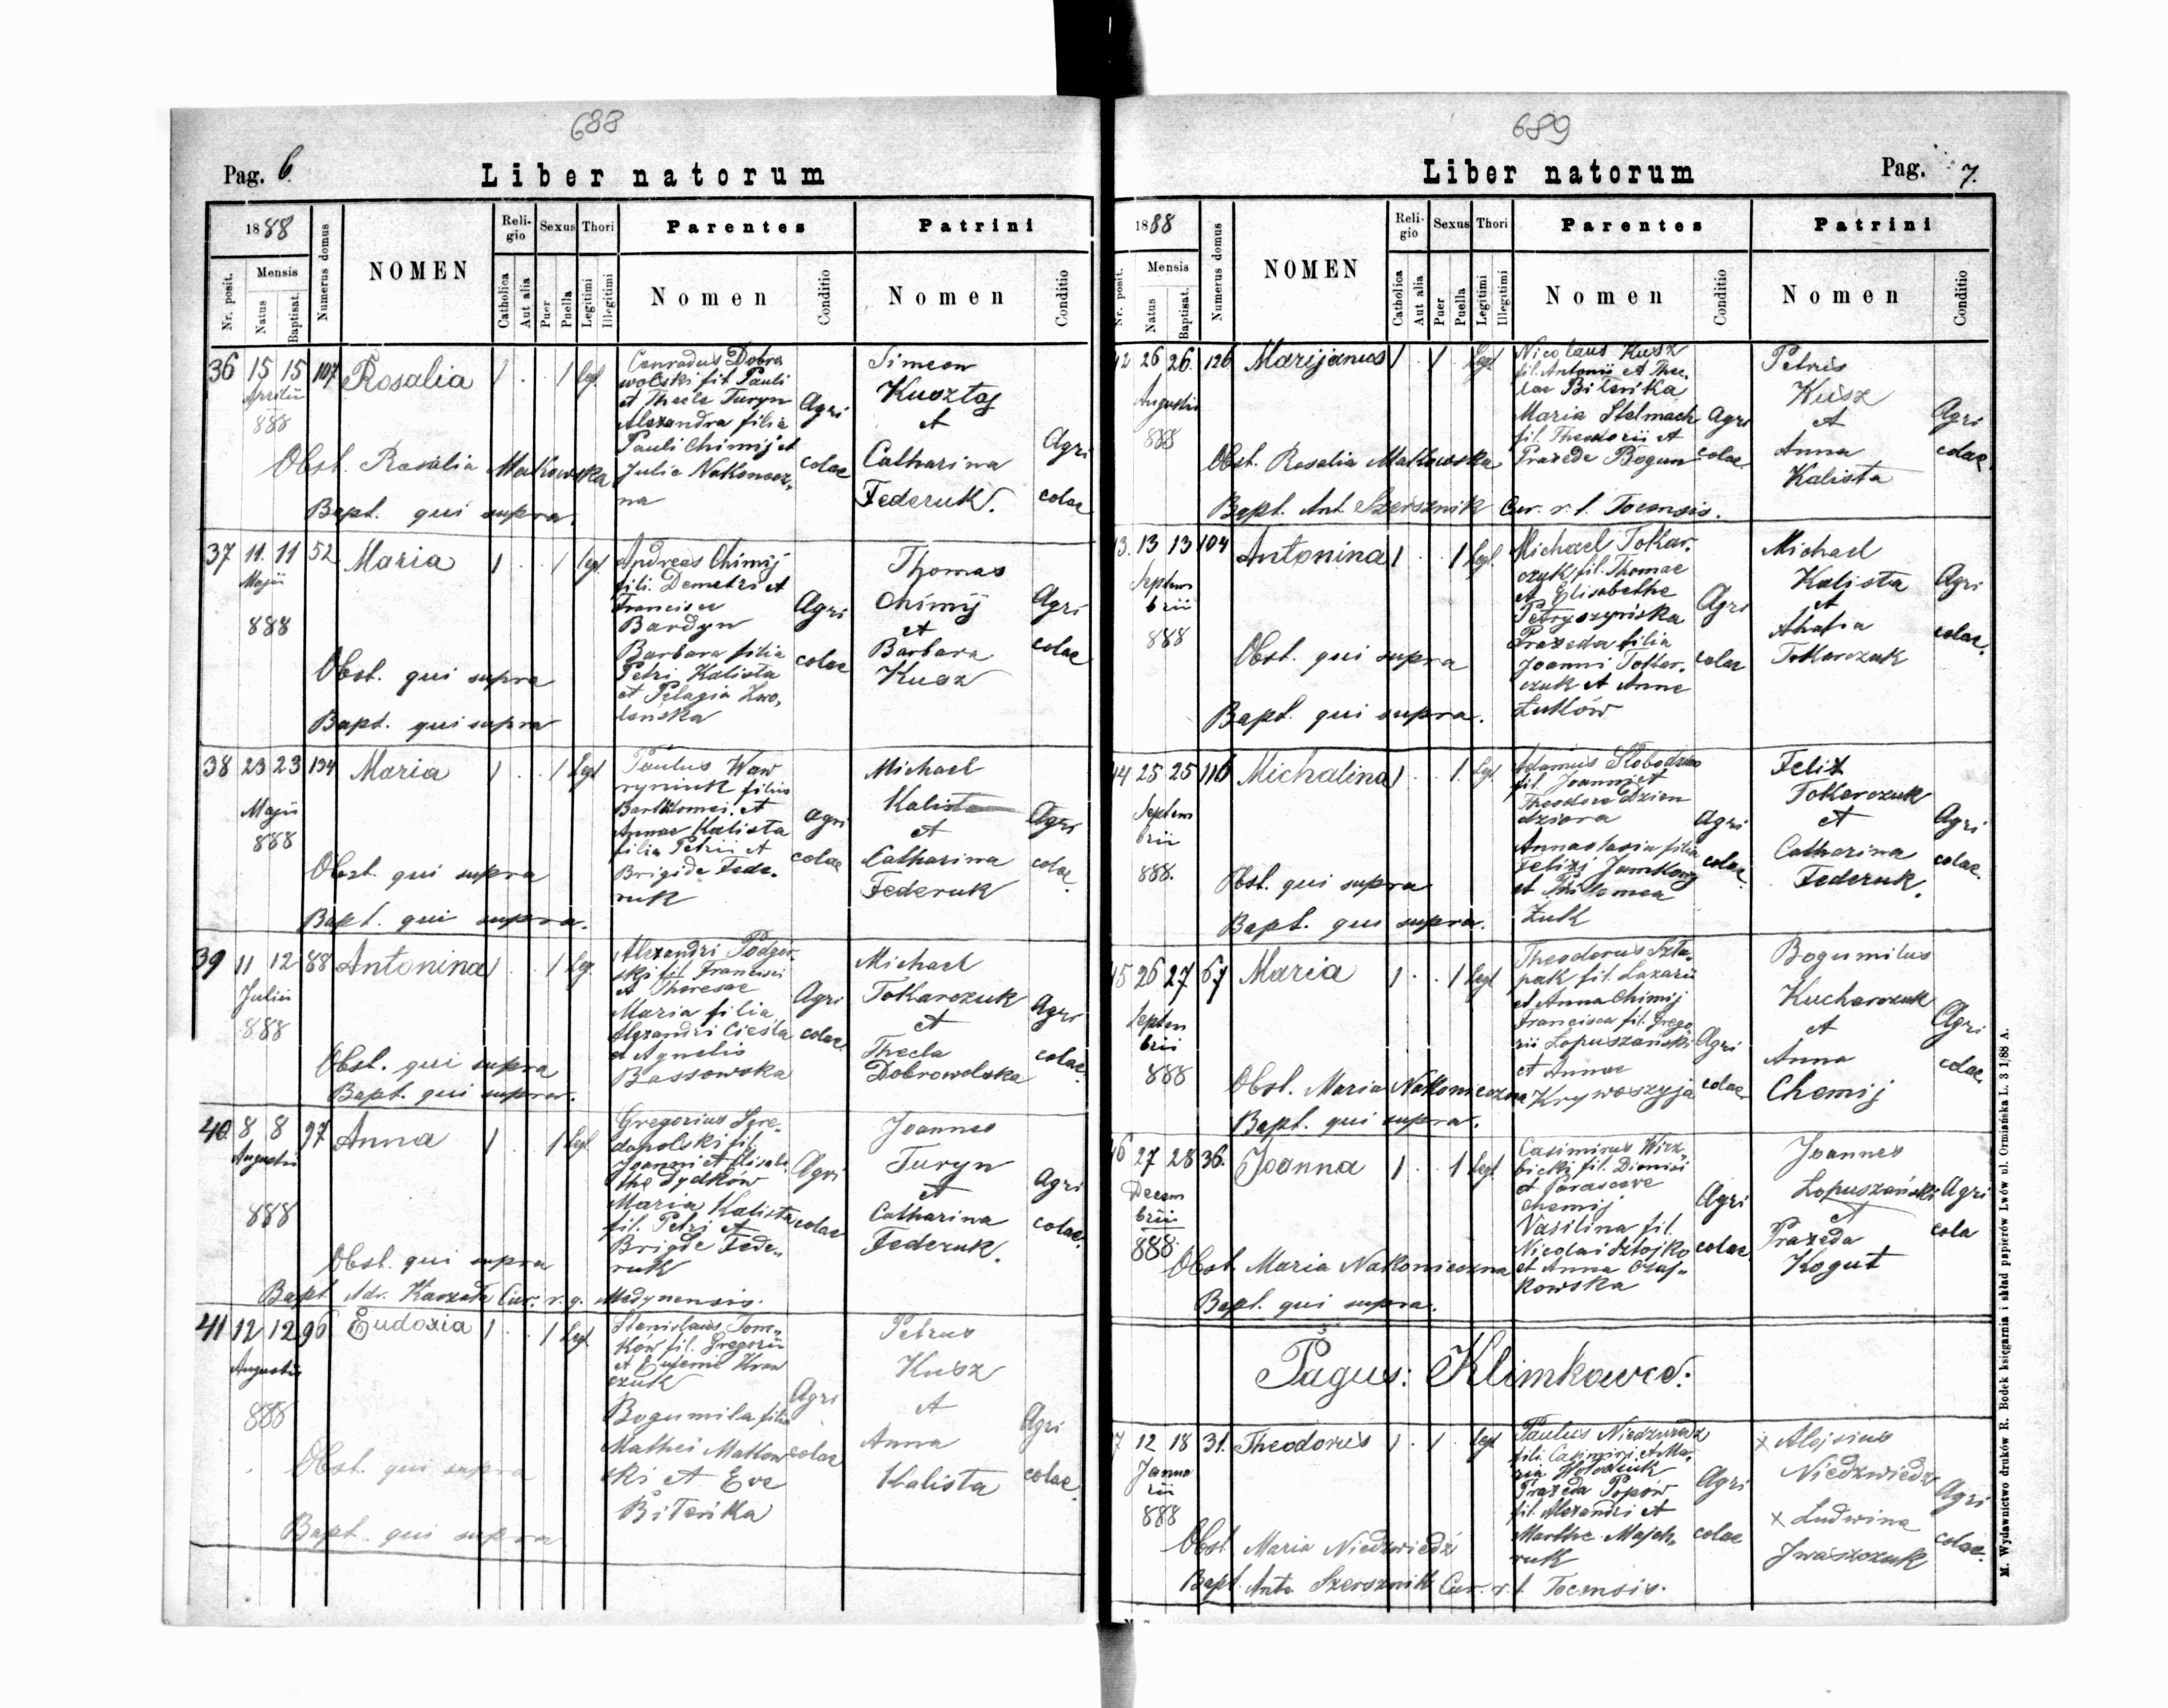 688
Pag. 6.
Liber natorum
1888
Numerus domus
NOMEN
Religio
Sexus
Thori
Parentes
Patrini
Nr. posit.
Mensis
Natus
Baptisat.
Catholica
Aut alia
Puer
Puella
Legitimi
Illegitimi
Nomen
Conditio
Nomen
Conditio
36 15 15 107 Rosalia 1 . . 1 legt.
Aprilii
888
Conradus Dobro
wolski fil. Pauli
et Thecle Turyn
Alexandra filia
Pauli Chimij et
Julie Nakoniecz-
na
Agri
colae
Simeon
Kusztaj
et
Catharina
Federuk.
Agri
colae
Obst. Rosalia Malkowska
Bapt. qui supra.
37 11. 11 52 Maria 1 . . 1 legt.
Maji
888
Andreas Chimij
fili. Demetri et
Francisca
Bardyn
Barbara filia
Petri Kalista
et Pelagia Zwo-
lenska
Agri
colae
Thomas
Chimij
et
Barbara
Kusz
Agri
colae
Obst. qui supra
Bapt. qui supra
38 23 23 134 Maria 1 . . 1 legt
Maji
888
Paulus Waw
ryniuk filius
Bartolomei et
Annae Kalista
filia Petrii et
Brigide Fede-
ruk
Agri
colae
Michael
Kalista
et
Catharina
Federuk
Agri
colae.
Obst. qui supra
Bapt. qui supra.
39 11 12 88 Antonina 1 . . 1 leg.
Julii
888
Alexandri Podgor-
ski fil. Francisci
et Theresae
Maria filia
Alexandri Cieśla
et Agnetis
Bassowska
Agri
colae
Michael
Tokarczuk
et
Thecla
Dobrowolska
Agri
colae.
Obst. qui supra
Bapt. qui supra.
40. 8 8 97 Anna 1 . . 1 legt.
Augustii
888
Gregorius Sere-
dopolski fil.
Joanni et Elisabe-
the Dydków
Maria Kalista
fil. Petri et
Brigide Fede-
ruk
Agri
colae
Joannes
Turyn
et
Catharina
Federuk.
Agri
colae.
Obst. qui supra
Bapt. Cur. r. g. Medynensis.
41 12 12 96 Eudoxia 1 . . 1 legt
Augustii
888
Stanislaus Tom-
ków fil. Gregorii
et Eufemie Kraw
czuk
Bogumila filia
Mathei Malkow
ski et Eve
Biterska
Agri
colae
Petrus
Kusz
et
Anna
Kalista
Agri
colae.
Obst. qui supra
Bapt. qui supra
689
Liber natorum
Pag. 7.
1888
Numerus domus
NOMEN
Religio
Sexus
Thori
Parentes
Patrini
Nr. posit.
Mensis
Natus
Baptisat.
Catholica
Aut alia
Puer
Puella
Legitimi
Illegitimi
Nomen
Conditio
Nomen
Conditio
42 26 26. 126 Marijanus 1 . 1 . legt
Augustii
888
Nicolaus Kusz
fil. Antonii et Thec-
lae Biterska
Maria Stelmach
fil. Theodorii et
Praxede Bogun
Agri
colae
Petrus
Kusz
et
Anna
Kalista
Agri
colae.
Obst. Rosalia Malkowska
Bapt. Ant. Szersznik Cur. r. l. Tocensis.
13. 13 13 104 Antonina 1 . . 1 legt.
Septem
brii
888
Michael Tokar-
czuk fil. Thomae
et Elisabethe
Petryszyńska
Praxeda filia
Joanni Tokar-
czuk et Anne
Łuków
Agri
colae
Michael
Kalista
et
Tokarczuk
Agri
colae.
Obst. qui supra
Bapt. qui supra.
44 25 25 116 Michalina 1 . . 1. legt
Septem
brii
888.
Adamus Słobodzian
fil. Joanni et
Theodora Dzien
dziora
Annastasia filia
Felixi Jamkowy
et Philomea
Żuk
Agri
colae.
Felix
Tokarczuk
et
Catharina
Federuk.
Agri
colae.
Obst. qui supra
Bapt. qui supra.
45 26 27 67 Maria 1 . . 1 legt
Septem
brii
888
Theodorus Szta-
pak fil. Lazarii
et Anna Chimij
Francisca fil. Grego
rii Łopuszański
et Annae
Krywoszyja
Agri
colae
Bogumilus
Kucharczuk
et
Anna
Chomij
Agri
colae.
Obst. Maria Nakonieczna
Bapt. qui supra.
46 27 28 36. Joanna 1 . . 1 legt
Decem
brii
888
Casimirus Wirz-
bicki fil. Dionisi
et Parasceve
Chomij
Vasilina fil.
Nicolai Sztojko
et Anna Czaj-
kowska
Agri
colae
Joannes
Łopuszański
et
Praxeda
Kogut
Agri
cola
Obst. Maria Nakonieczna
Bapt. qui supra.
Pagus: Klimkowce.
7 12 18 31. Theodorus 1 . 1 . legt
Janua
rii
888
Paulus Niedzwiedz
fili. Casimiri et Ma-
ria Hołodiuk
Praxeda Popów
fil. Alexandri et
Marthe Majch-
ruk
Agri
colae
x Alojsius
Niedzwiedz
x Ludwina
Iwaszczuk
Agri
colae.
Obst. Maria Niedzwiedź
Bapt. Anto Szersznik Cur. r. l. Tocensis.
M. Wydawnictwo druków R. Bodek księgarnia i skład papierów Lwów ul. Ormiańska L. 3 1/88 A.